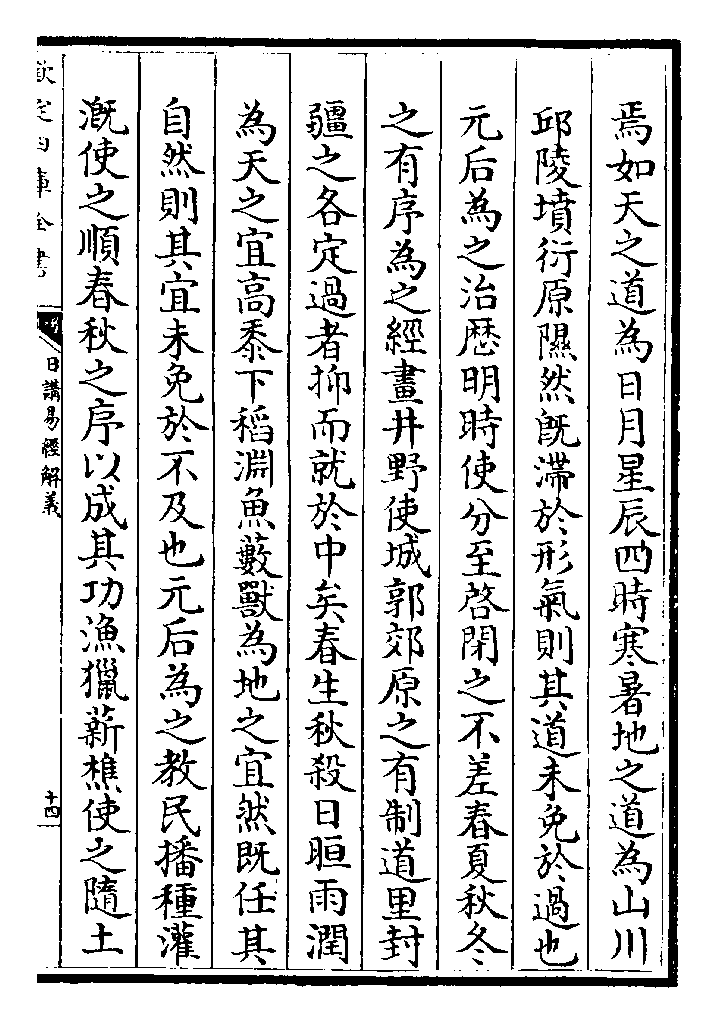 焉如天之道為日月星辰四時寒暑地之道為山川
邱陵墳衍原隰然既滯於形氣則其道未免於過也
元后為之治歴明時使分至啓閉之不差春夏秋冬
之有序為之經畫井野使城郭郊原之有制道里封
疆之各定過者抑而就於中矣春生秋殺日晅雨潤
為天之宜高黍下稻淵魚藪獸為地之宜然既任其
自然則其宜未免於不及也元后為之教民播種灌
溉使之順春秋之序以成其功漁獵薪樵使之隨土
欽定四庫全書
日講易經解義
十四